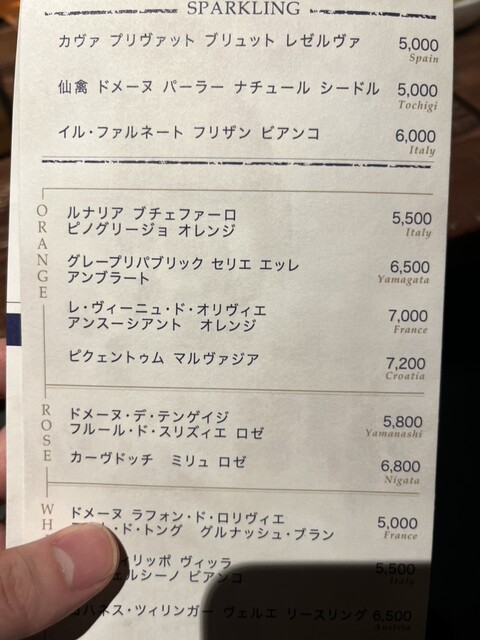 SPARKLING
カヴァ プリヴァット ブリュット レゼルヴァ 5,000
Spain
仙禽 ドメーヌ パーラー ナチュール シードル 5,000
Tochigi
イル・ファルネート フリザン ビアンコ 6,000
Italy
ORANGE
ルナリア プチェファーロ
ピノグリージョ オレンジ 5,500
Italy
グレープリパブリック セリエ エッレ
アンブラート 6,500
Yamagata
レ・ヴィーニュ・ド・オリヴィエ
アンスーシアント オレンジ 7,000
France
ピクェントゥム マルヴァジア 7,200
Croatia
ROSE
ドメーヌ・デ・テンゲイジ
フルール・ド・スリズィエ ロゼ 5,800
Yamanashi
カーヴドッチ ミリュ ロゼ 6,800
Nigata
WH
ドメーヌ ラフォン・ド・ロリヴィエ
ド・トング グルナッシュ・ブラン 5,000
France
ィリッポ ヴィッラ
ェルシーノ ビアンコ 5,500
Italy
ハネス・ツィリンガー ヴェルエ リースリング 6,500
Austria